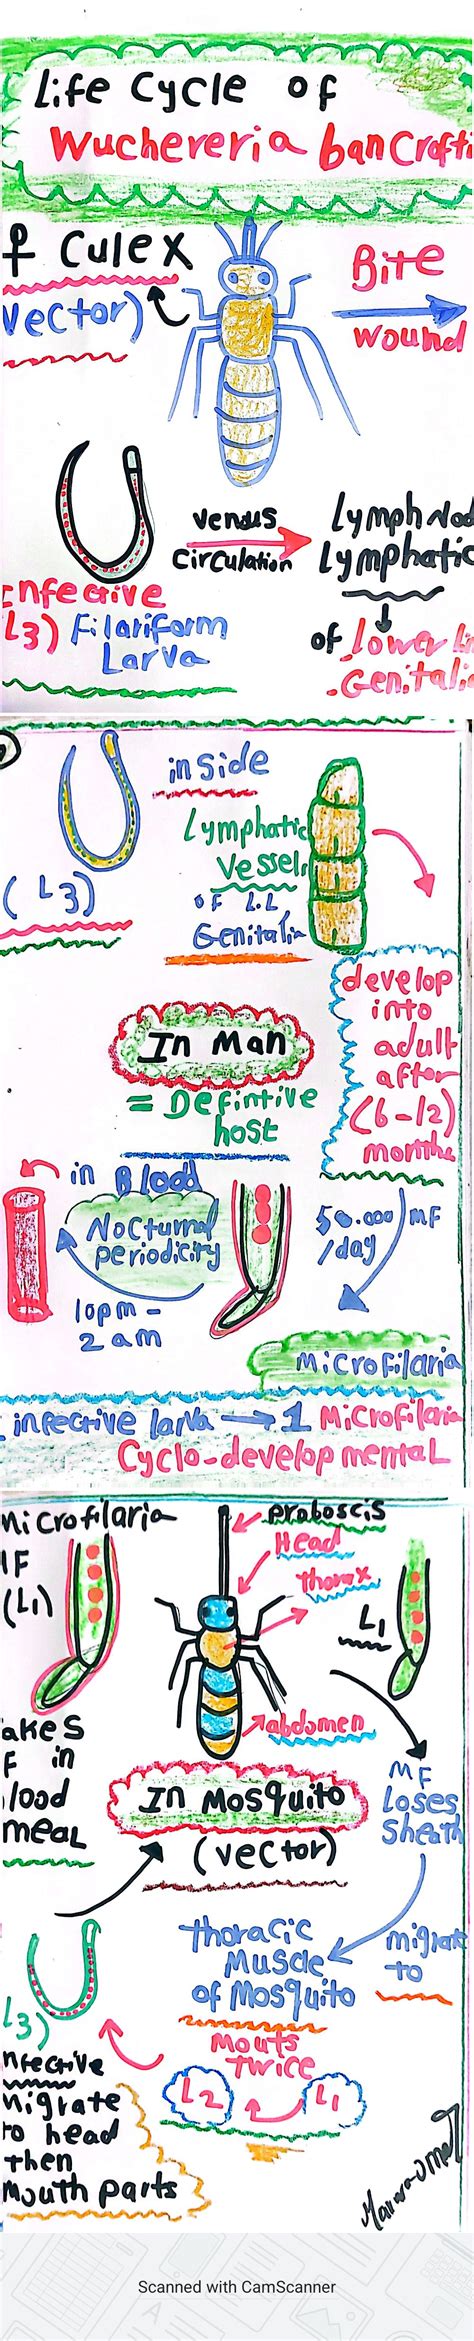 Life Cycle of
Wuchereria bancrofti
♀ Culex
Vector)
Bite
wound
Venous
Circulation
Lymph Nod
Lymphatic
of lower Li
Genitali
Infective
L3) Filariform
Larva
(L3)
inside
Lymphatic
Vessel
of L.L
Genitalia
develop
into
adult
after
(6-12)
months
In Man
= Defintive
host
in Blood
Nocturnal
periodicity
10pm -
2 am
50.000 MF
/day
Microfilaria
infective larva → 1 Microfilaria
Cyclo-develop mental
Microfilaria
MF
(L1)
proboscis
Head
thorax
abdomen
L1
takes
F in
lood
meaL
In Mosquito
(vector)
MF
Loses
Sheath
migrate
to
thoracic
Muscle
of Mosquito
Mouts
twice
L2
L1
L3)
nfective
Migrate
to head
then
Mouth parts
Marwa omar
Scanned with CamScanner